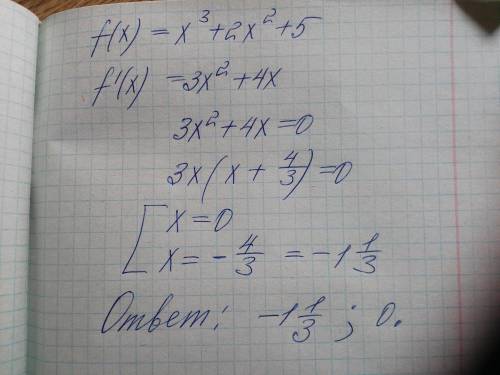 f(x) = x³+2x²+5
f'(x) = 3x²+4x
3x²+4x=0
3x(x + 4/3)=0
[ x=0
x= - 4/3 = -1 1/3
Ответ: -1 1/3 ; 0.